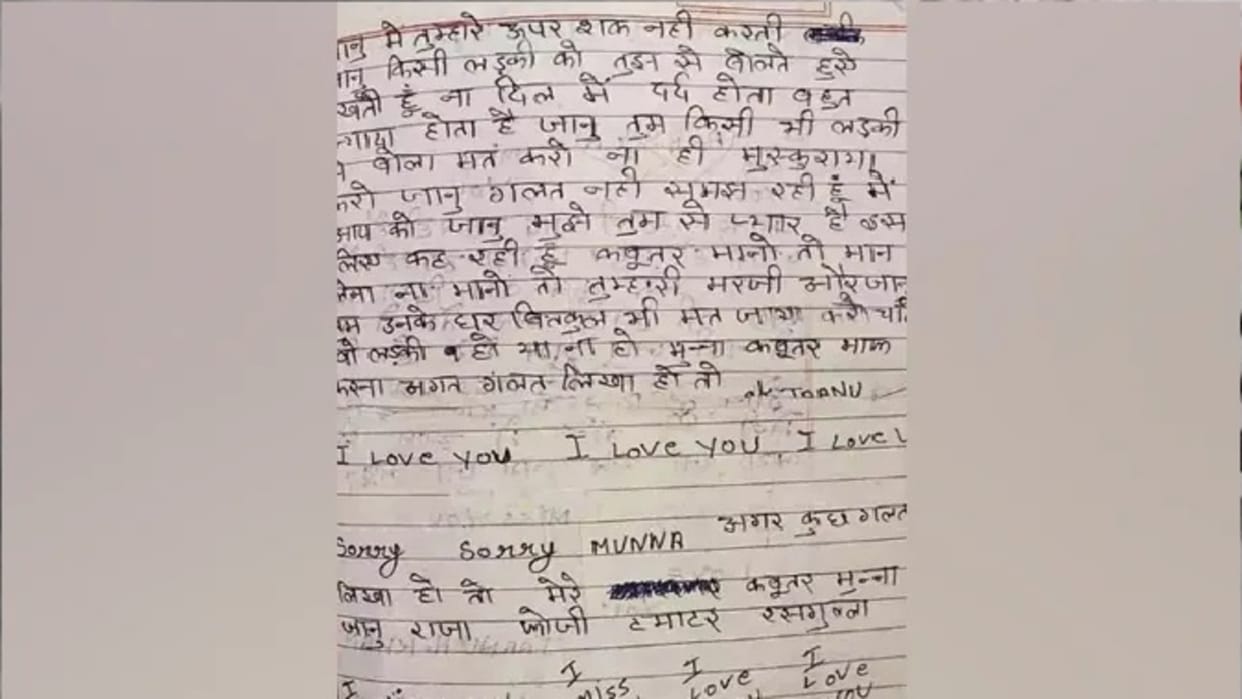 जानु मे तुम्हारे ऊपर शक नही करती
जानु किसी लड़की को तुझ से बोलते हुसे
खती हूँ ना दिल में दर्द होता बहुत
होता है जानु तुम किसी भी लड़की
बोला मत करो ना ही मुस्कुराया
करो जानु गलत नही समझ रही हूँ में
आप को जानु मुझे तुम से प्यार है इस
लिए कह रही हूँ कबूतर मानो तो मान
लेना ना मानो तो तुम्हारी मरजी और जान
उनके घर बिलकुल भी मत जाया करो
वो लड़की हो या ना हो मुन्ना कबूतर माफ
करना अगर गलत लिखा हो तो
I Love you I Love you I Love
Sorry Sorry MUNNA अगर कुछ गलत
लिखा हो तो मेरे कबूतर मुन्ना
जानु राजा टमाटर रसगुल्ला
I I I
I miss Love Love
you